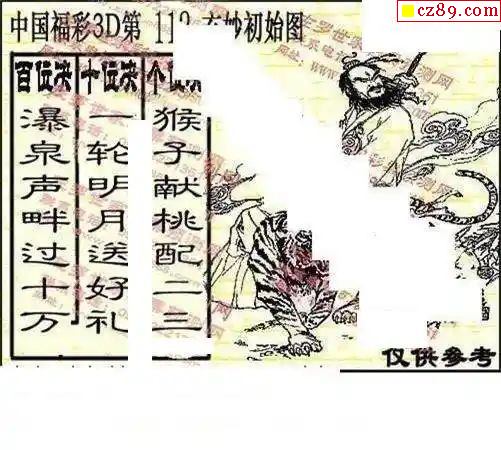 cz89.com
中国福彩3D第 112 玄妙初始图
百位诀
十位诀
个位
瀑泉声畔过十万
一轮明月送好礼
猴子献桃配二三
仅供参考